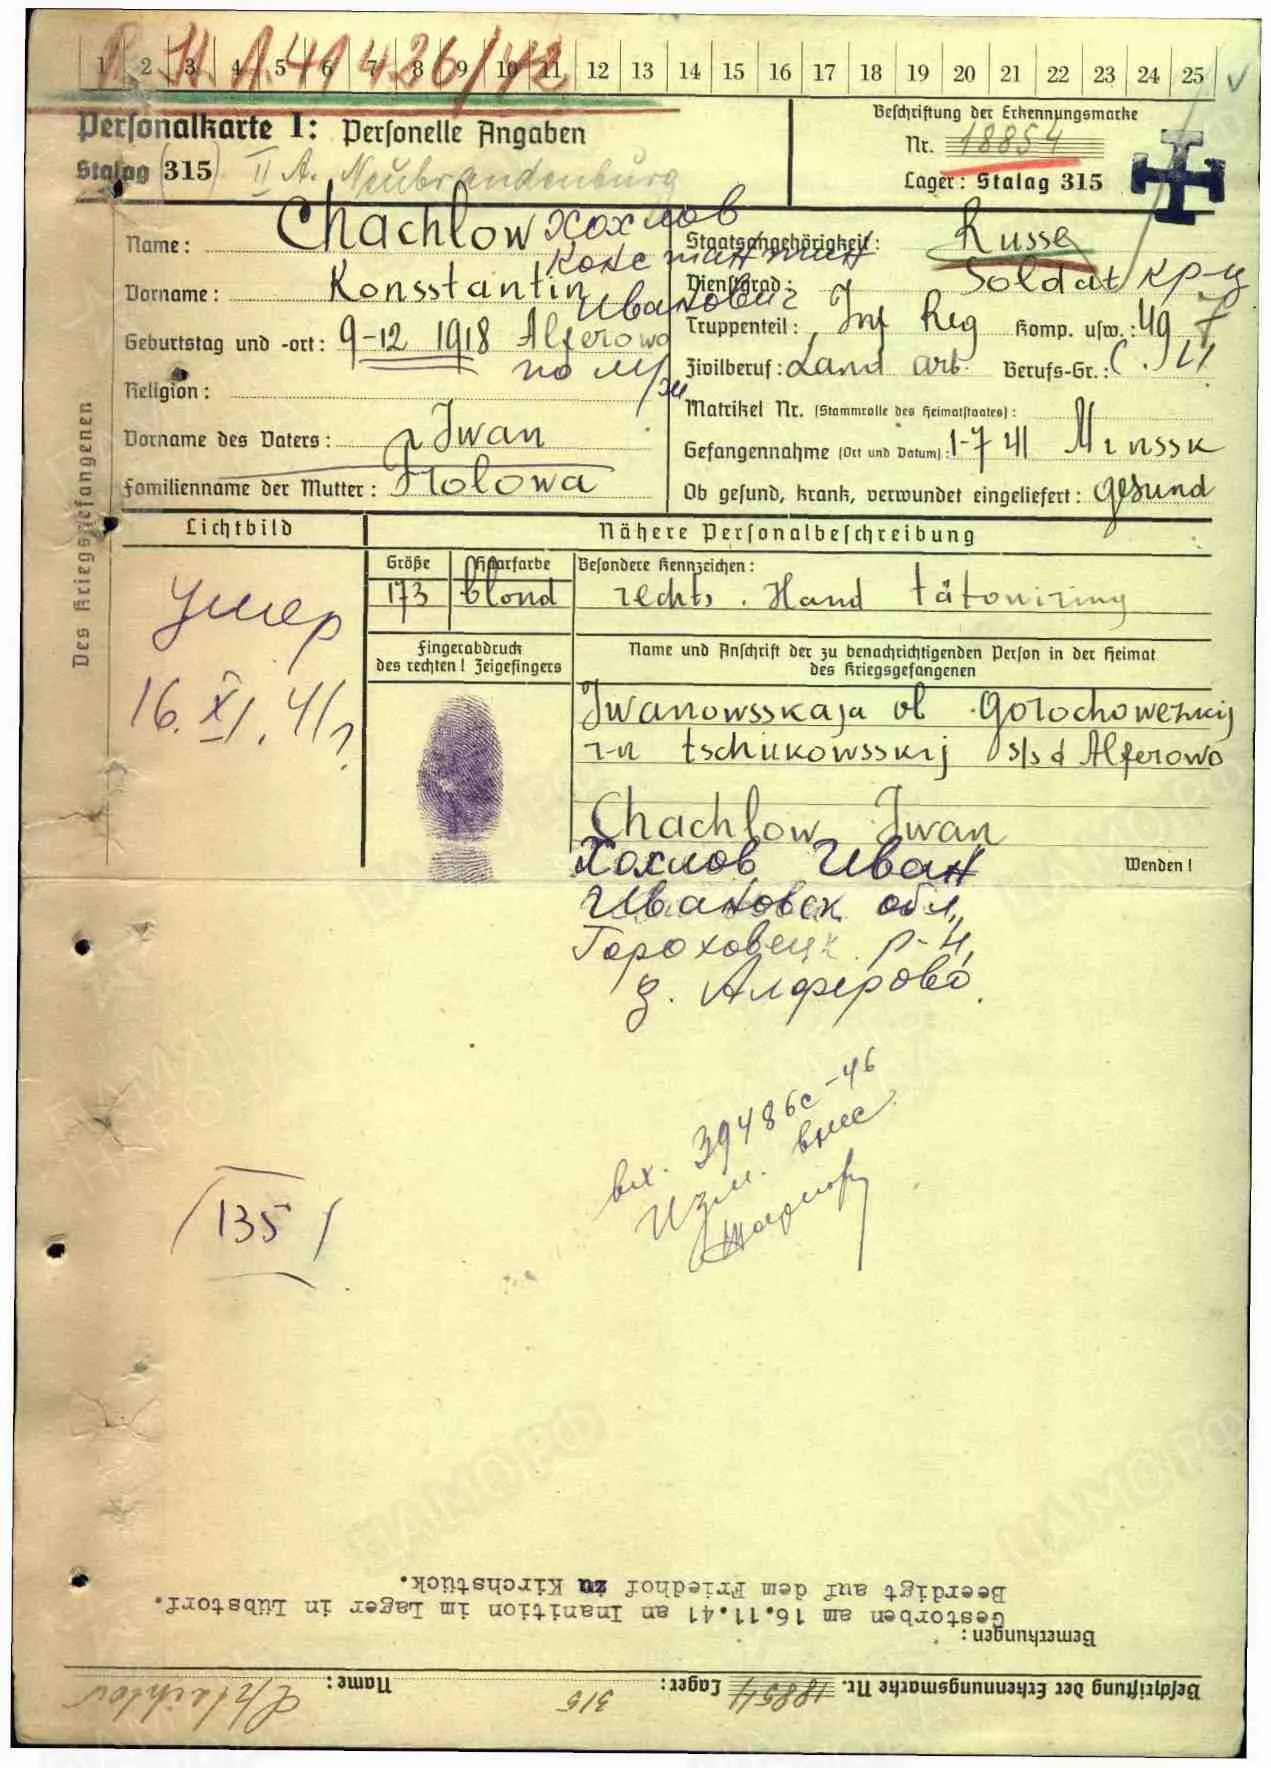 R. H. A 41426/42
1 2 3 4 5 6 7 8 9 10 11 12 13 14 15 16 17 18 19 20 21 22 23 24 25
Personalkarte I: Personelle Angaben
Stalag 315 II A. Neubrandenburg
Beschriftung der Erkennungsmarke
Nr. 18854
Lager: Stalag 315
Des Kriegsgefangenen
Name: Chachlow Хохлов
Константин
Vorname: Konsstantin Иванович
Geburtstag und -ort: 9-12 1918 Alferowo
Religion:
Vorname des Vaters: Iwan
Familienname der Mutter: Frolowa
Staatsangehörigkeit: Russe
Dienstgrad: Soldat кр-ц
Truppenteil: Inf Reg Komp. usw.: 49 7
Zivilberuf: Land arb. Berufs-Gr.:
Matrikel Nr. (Stammrolle des Heimatstaates):
Gefangennahme (Ort und Datum): 1-7 41 Minssk
Ob gesund, krank, verwundet eingeliefert: gesund
Lichtbild
умер
16.XI.41г
Nähere Personalbeschreibung
Größe Haarfarbe Besondere Kennzeichen:
173 blond rechts. Hand tätowiring
Fingerabdruck
des rechten! Zeigefingers
Name und Anschrift der zu benachrichtigenden Person in der Heimat
des Kriegsgefangenen
Iwanowsskaja obl Gorochowezkij
r-n tschukowsskij s/s d Alferowo
Chachlow Iwan
Wenden!
Хохлов Иван
Ивановск обл,
Гороховецк р-н,
д. Алферово.
вх. 39486с-46
Изм. внес
135
Bemerkungen:
Gestorben am 16.11.41 an Inanition im Lager in Lübstorf.
Beerdigt auf dem Friedhof zu Kirchstück.
Beschriftung der Erkennungsmarke Nr. 18854 Lager: 315 Name: Chachlow
НАМОРФ